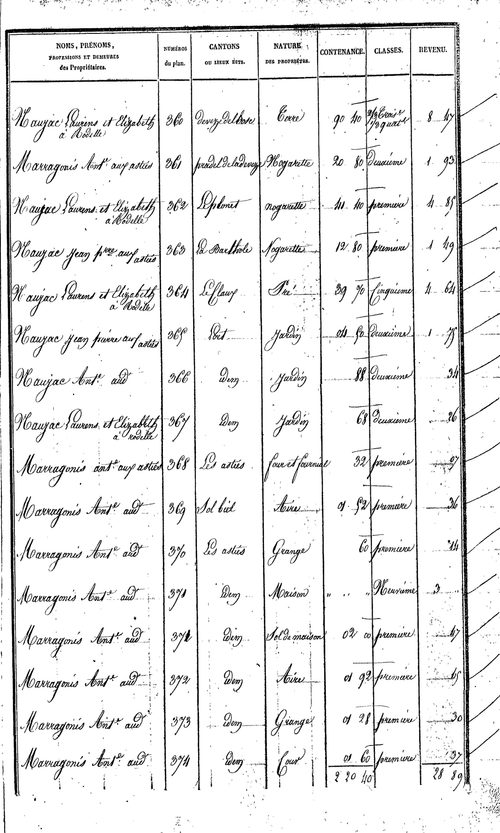 NOMS, PRÉNOMS, PROFESSIONS ET DEMEURES des Propriétaires. NUMÉROS du plan. CANTONS OU LIEUX DITS. NATURE DES PROPRIÉTÉS. CONTENANCE. CLASSES. REVENU.
Naujac Laurens et Elizabeth à Rodelle 360 Terre 90 40 8 47
Marragonis Ant.e aux astiés 361 Nogarette 20 80 deuxième 1 93
Naujac Laurens et Elizabeth à Rodelle 362 Le planet nogarette 41 40 première 4 85
Naujac Jean p.re aux astiés 363 La Barthole Nogarette 12 80 première 1 49
Naujac Laurens et Elizabeth à Rodelle 364 Le Claux Pré 39 70 Cinquième 4 64
Naujac Jean pierre aux astiés 365 Jardin 04 50 deuxième 1 75
Naujac Ant.e aud 366 idem Jardin 88 deuxième 34
Naujac Laurens et Elizabeth à Rodelle 367 idem Jardin 68 deuxième 26
Marragonis ant.e aux astiés 368 Les astiés four et fournial 32 première 07
Marragonis Ant.e aud 369 Sol biel Aire 01 52 première 36
Marragonis Ant.e aud 370 Les astiés Grange 60 première 14
Marragonis Ant.e aud 371 idem Maison " " " Neuvième 3
Marragonis Ant.e aud 371 idem Sol de maison 02 00 première 47
Marragonis Ant.e aud 372 idem Aire 01 92 première 45
Marragonis Ant.e aud 373 idem Grange 01 28 première 30
Marragonis Ant.e aud 374 idem Cour 01 60 première 37
2 20 40 28 89